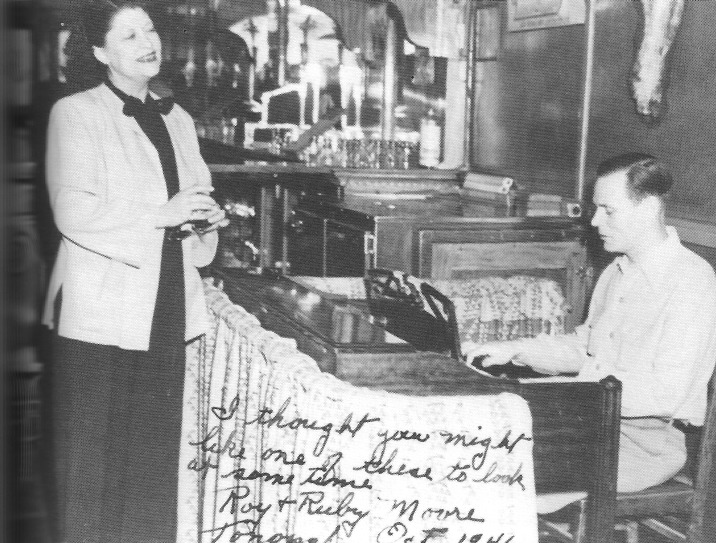 I thought you might
like one of these to look
at sometime
Roy & Ruby Moore
Tonopah Oct 1941